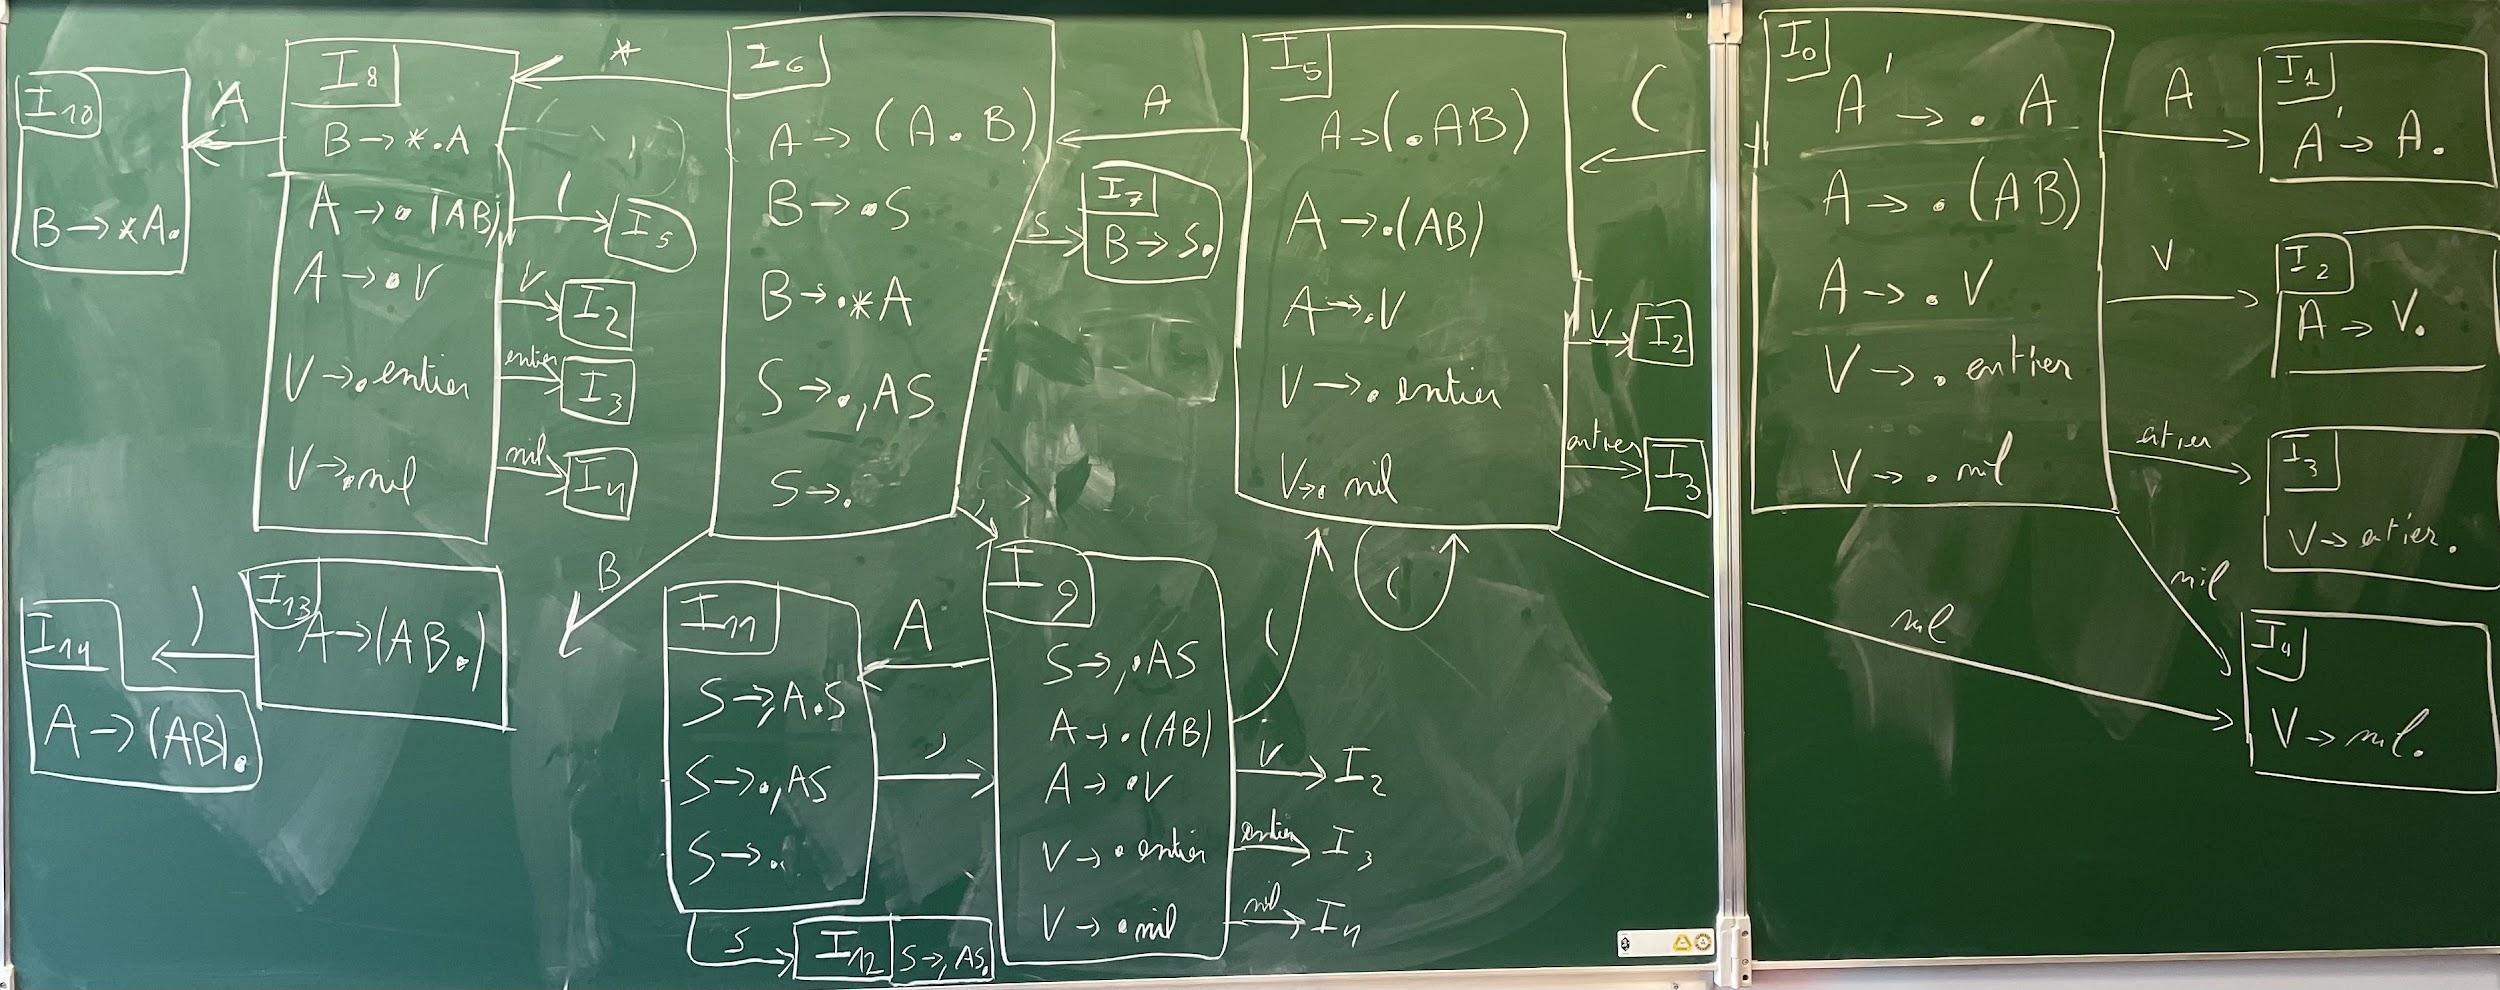 I10
B → *A.
A
I8
B → *.A
A → .(AB)
A → .V
V → .entier
V → .nil
*
(
I5
V
I2
entier
I3
nil
I4
I6
A → (A.B)
B → .S
B → .*A
S → .,AS
S → .
A
S
I7
B → S.
,
B
I5
A → (.AB)
A → .(AB)
A → .V
V → .entier
V → .nil
(
V
I2
entier
I3
(
nil
I0
A' → .A
A → .(AB)
A → .V
V → .entier
V → .nil
A
I1
A' → A.
V
I2
A → V.
entier
I3
V → entier.
nil
I4
V → nil.
I14
A → (AB).
)
I13
A → (AB.)
I11
S → ,A.S
S → .,AS
S → .
A
,
S
I12
S → ,AS.
I9
S → ,.AS
A → .(AB)
A → .V
V → .entier
V → .nil
(
V
I2
entier
I3
nil
I4